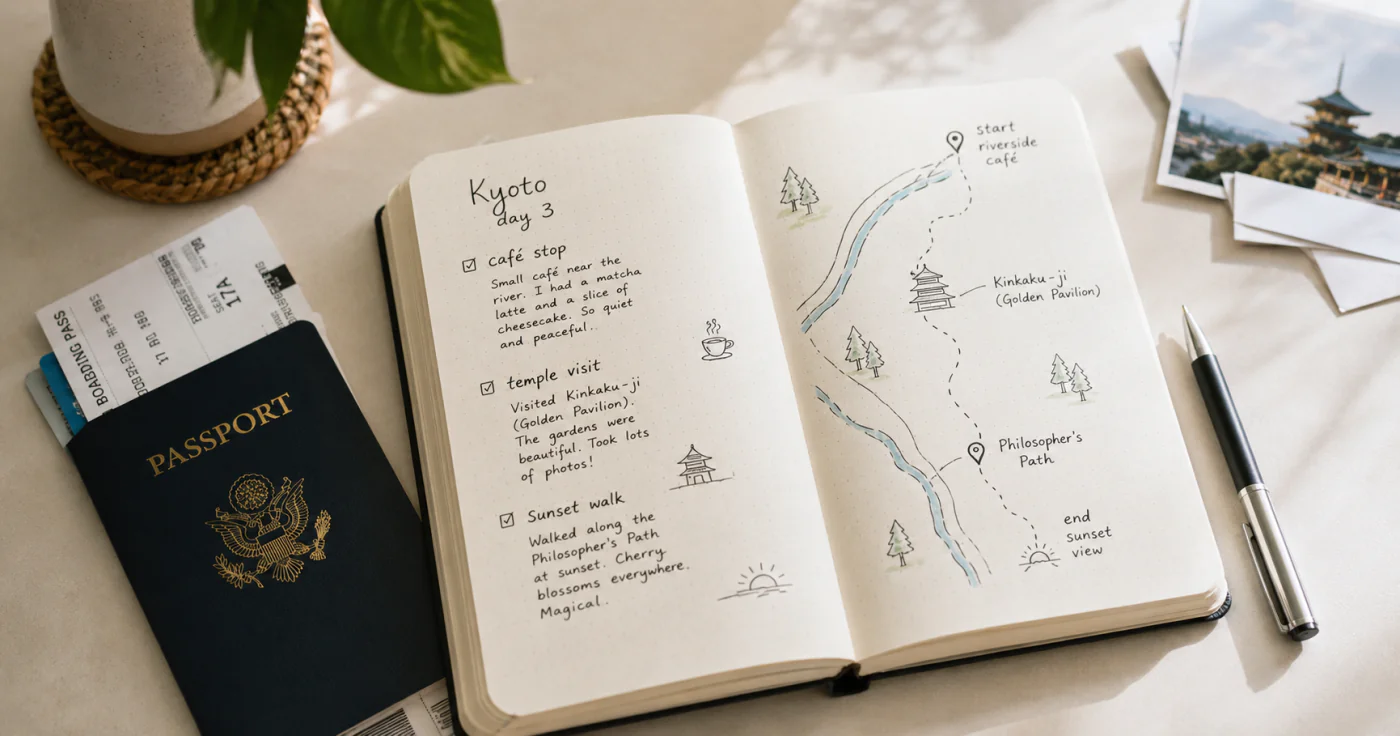 Kyoto
day 3
café stop
Small café near the
river. I had a matcha
latte and a slice of
cheesecake. So quiet
and peaceful..
temple visit
Visited Kinkaku-ji
(Golden Pavilion).
The gardens were
beautiful. Took lots
of photos!
Sunset walk
Walked along the
Philosopher's Path
at sunset. Cherry
blossoms everywhere.
Magical..
start
riverside
café
Kinkaku-ji
(Golden Pavilion)
Philosopher's
Path
end
sunset
view
BOARDING PASS
SEAT
17A
PASSPORT